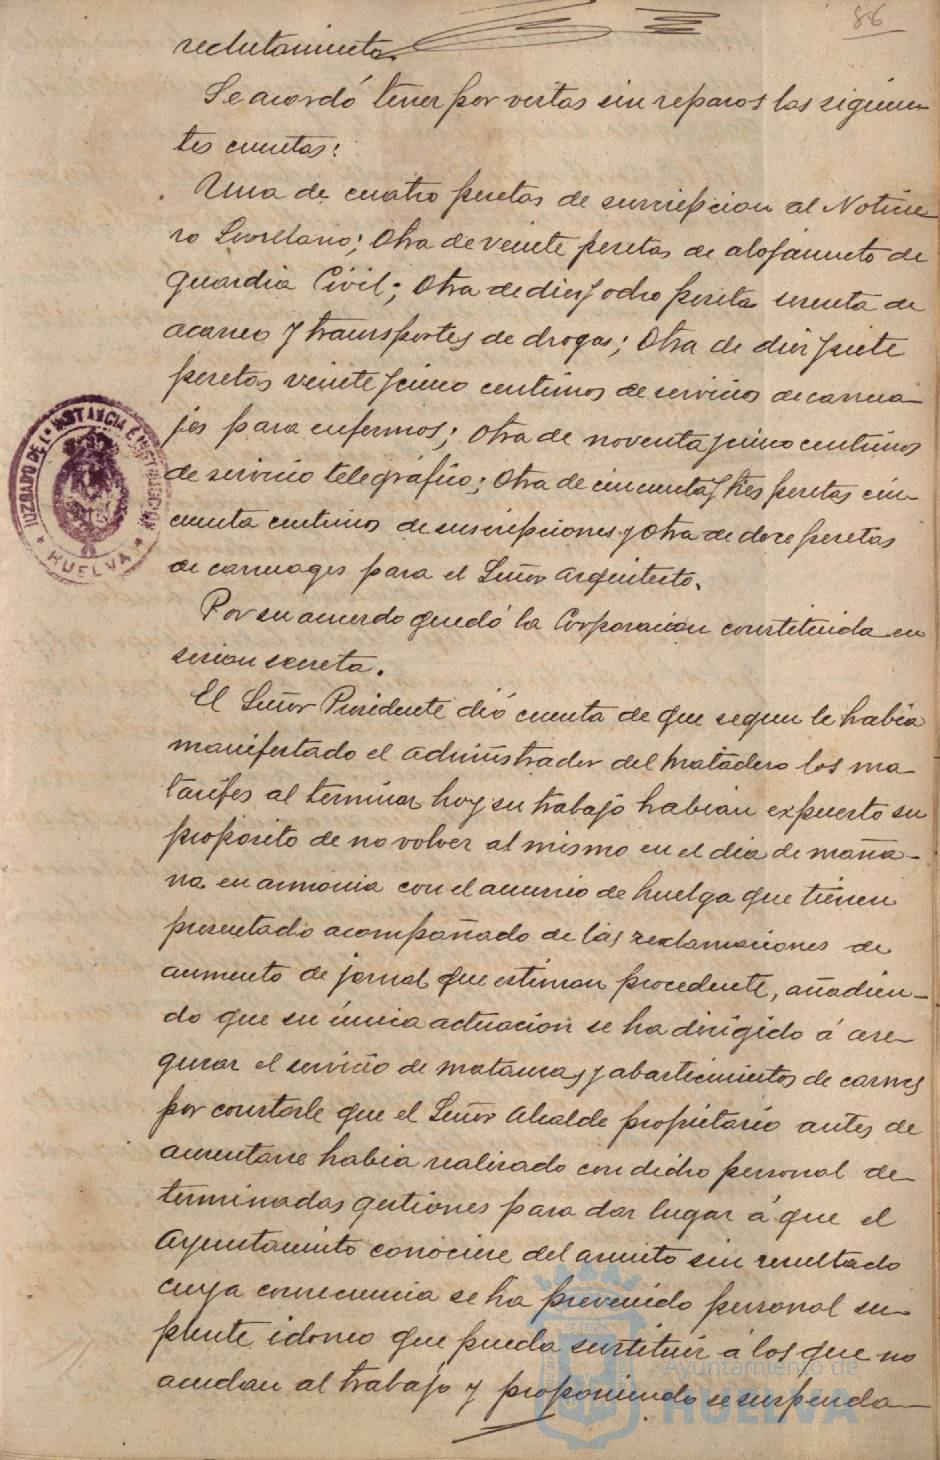 86
reclutamiento.
Se acordó tener por vistas sin reparos las siguien-
tes cuentas:
Una de cuatro pesetas de suscripcion al Noticie-
ro Sevillano; Otra de veinte pesetas de alojamiento de
guardia Civil; Otra de diez y ocho peseta sesenta de
acarreo y transportes de drogas; Otra de diez y siete
pesetas veinte y cinco centimos de servicios de carrua-
jes para enfermos; Otra de noventa y cinco centimos
de servicio telegráfico; Otra de cincuenta y tres pesetas cin-
cuenta centimos de suscripciones y Otra de doce pesetas
de carruages para el Señor Arquitecto.
Por su acuerdo quedó la Corporacion constituida en
sesion secreta.
El Señor Presidente dió cuenta de que segun le habia
manifestado el administrador del Matadero los ma-
tarifes al terminar hoy su trabajo habian expuesto su
proposito de no volver al mismo en el dia de maña-
na en armonia con el anuncio de huelga que tienen
presentado acompañado de las reclamaciones de
aumento de jornal que estiman procedente, añadien-
do que su única actuacion se ha dirigido á ase-
gurar el servicio de matanzas y abastecimientos de carnes
por constarle que el Señor Alcalde propietario antes de
ausentarse habia realizado con dicho personal de-
terminadas gestiones para dar lugar á que el
Ayuntamiento conociese del asunto sin resultado
cuya consecuencia se ha prevenido personal su-
plente idoneo que pueda sustituir á los que no
acudan al trabajo y proponiendo se suspenda
JUZGADO DE 1ª INSTANCIA E INSTRUCCION
* HUELVA *
Ayuntamiento de
HUELVA